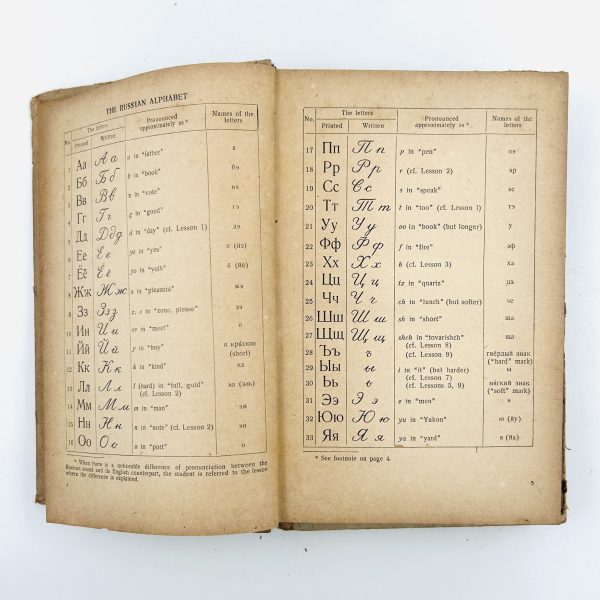 THE RUSSIAN ALPHABET
No. The letters Pronounced approximately as* Names of the letters
Printed Written
1 Аа Аа a in "father" а
2 Бб Бб b in "book" бэ
3 Вв Вв v in "vote" вэ
4 Гг Гг g in "good" гэ
5 Дд Ддд d in "day" (cf. Lesson 1) дэ
6 Ее Ее ye in "yes" е (йэ)
7 Ёё Её yo in "yolk" ё (йо)
8 Жж Жж s in "pleasure" жэ
9 Зз Ззз z, s in "zone, please" зэ
10 Ии Ии ee in "meet" и
11 Йй Йй y in "boy" и крáткое
(short)
12 Кк Кк k in "kind" ка
13 Лл Лл l (hard) in "full, gold" эл (эль)
(cf. Lesson 2)
14 Мм Мм m in "man" эм
15 Нн Нн n in "note" (cf. Lesson 2) эн
16 Оо Оо o in "port" о
* When there is a noticeable difference of pronunciation between the
Russian sound and its English counterpart, the student is referred to the lesson
where the difference is explained.
4
No. The letters Pronounced approximately as* Names of the letters
Printed Written
17 Пп Пп p in "pen" пэ
18 Рр Рр r (cf. Lesson 2) эр
19 Сс Сс s in "speak" эс
20 Тт Тт t in "too" (cf. Lesson 1) тэ
21 Уу Уу oo in "book" (but longer) у
22 Фф Фф f in "fire" эф
23 Хх Хх h (cf. Lesson 3) ха
24 Цц Цц tz in "quartz" цэ
25 Чч Чч ch in "lunch" (but softer) че
26 Шш Шш sh in "short" ша
27 Щщ Щщ shch in "tovarishch" ща
(cf. Lesson 9)
28 Ъъ ъ (cf. Lesson 8) твёрдый знак
("hard" mark)
29 Ыы ы i in "it" (but harder) ы
(cf. Lesson 7)
30 Ьь ь (cf. Lessons 5, 9) мягкий знак
("soft" mark)
31 Ээ Ээ e in "men" э
32 Юю Юю yu in "Yukon" ю (йу)
33 Яя Яя ya in "yard" я (йа)
* See footnote on page 4.
5